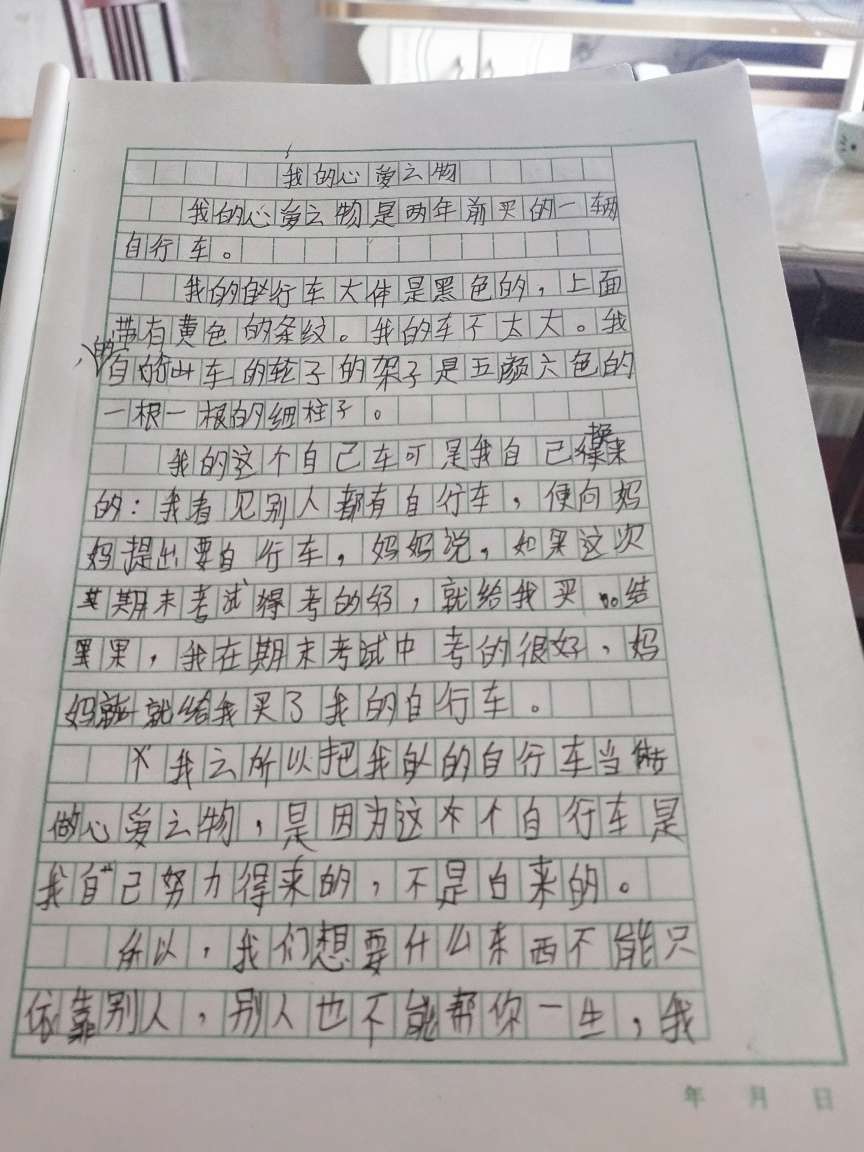 我的心爱之物
我的心爱之物是两年前买的一辆
自行车。
我的自行车大体是黑色的，上面
带有黄色的条纹。我的车不太大。我
的自车的轮子的架子是五颜六色的
一根一根的细柱子。
我的这个自己车可是我自己得来
的：我看见别人都有自行车，便向妈
妈提出要自行车，妈妈说，如果这次
期末考试得考的好，就给我买。结
果，我在期末考试中考的很好，妈
妈就给我买了我的自行车。
我之所以把我的自行车当
做心爱之物，是因为这个自行车是
我自己努力得来的，不是白来的。
所以，我们想要什么东西不能只
依靠别人，别人也不能帮你一生，我
年 月 日